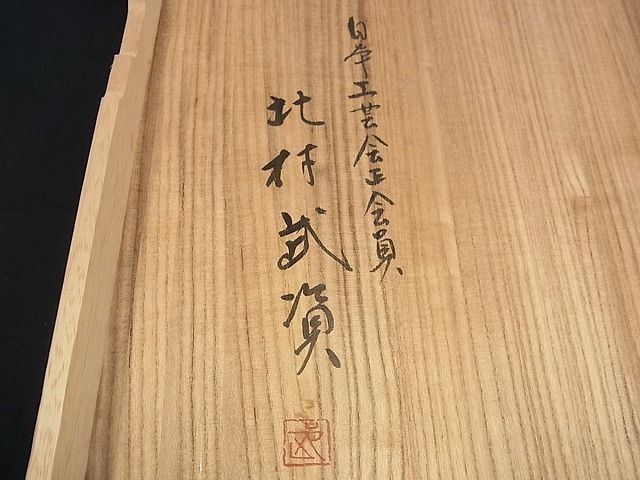 日本工芸会正会員
北村武資